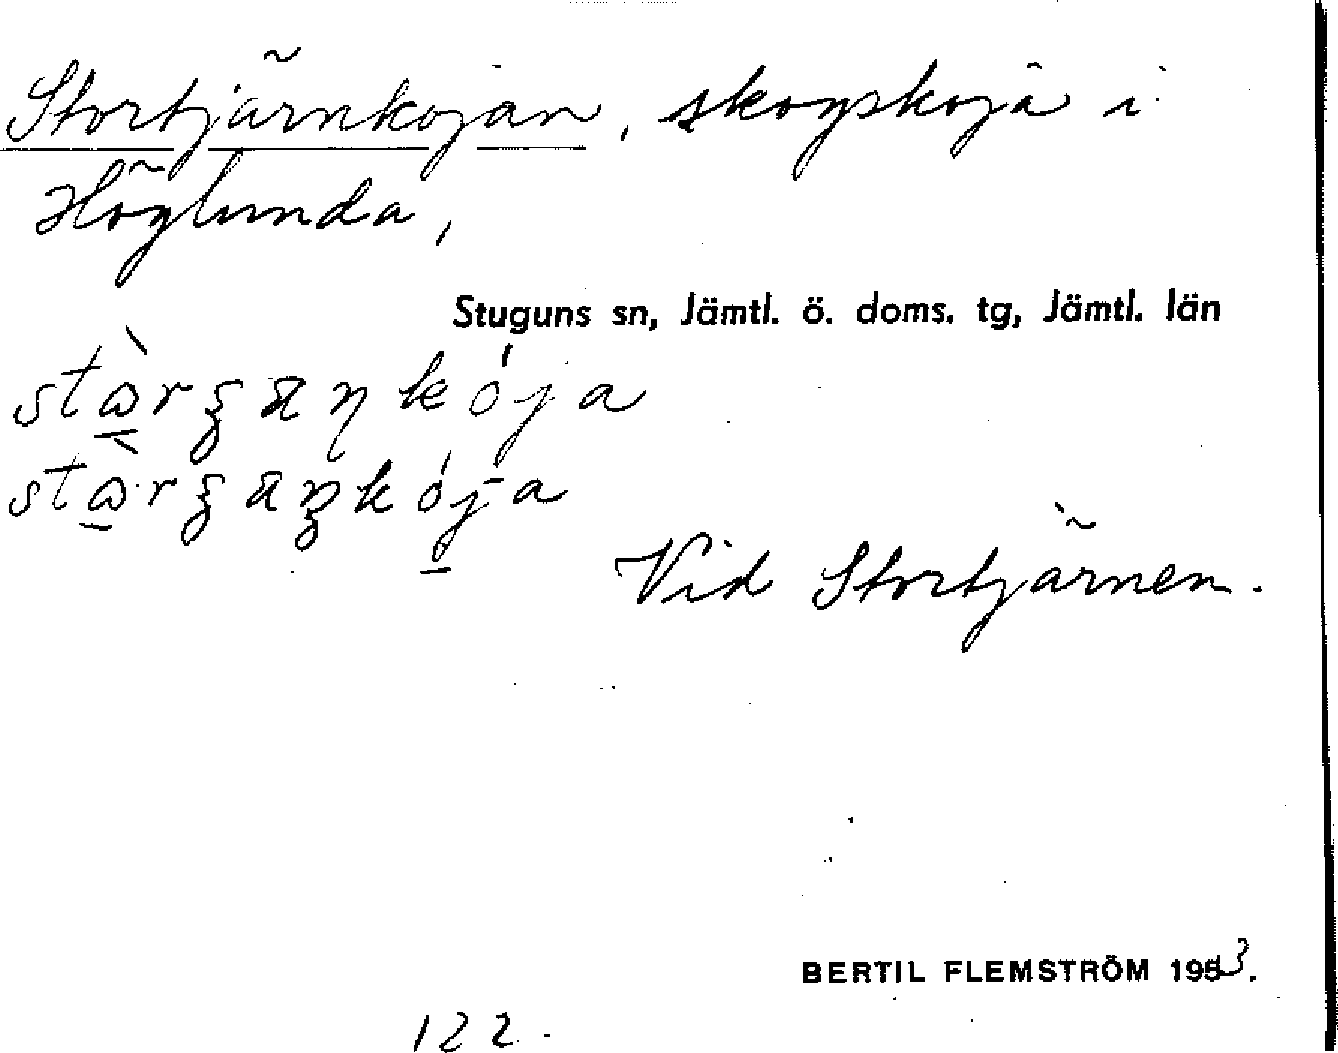 Stortjärnkojan, skogskoja i
Höglunda,
Stuguns sn, Jämtl. ö. doms. tg, Jämtl. län
Vid Stortjärnen.
BERTIL FLEMSTRÖM 1953.
122.